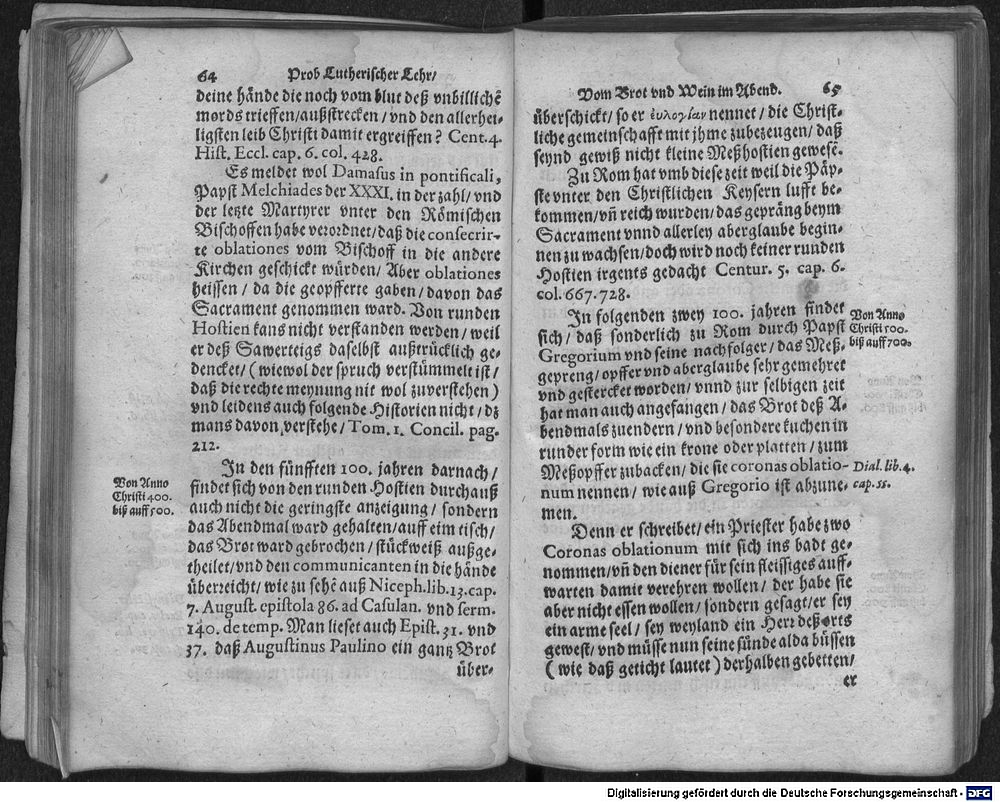 64 Prob Lutherischer Lehr/
deine hände die noch vom blut deß vnbillichē
mords trieffen/außstrecken/vnd den allerhei-
ligsten leib Christi damit ergreiffen? Cent. 4.
Hist. Eccl. cap. 6. col. 428.
Es meldet wol Damasus in pontificali,
Papst Melchiades der XXXI. in der zahl/vnd
der letzte Martyrer vnter den Römischen
Bischoffen habe verordnet/daß die consecrir-
te oblationes vom Bischoff in die andere
Kirchen geschickt würden/Aber oblationes
heissen/da die geopfferte gaben/davon das
Sacrament genommen ward. Von runden
Hostien kans nicht verstanden werden/weil
er deß Sawerteigs daselbst außtrücklich ge-
dencket/(wiewol der spruch verstümmelt ist/
daß die rechte meynung nit wol zuverstehen)
vnd leidens auch folgende Historien nicht/dz
mans davon verstehe/Tom. 1. Concil. pag.
212.
Von Anno
Christi 400.
biß auff 500.
In den fünfften 100. jahren darnach/
findet sich von den runden Hostien durchauß
auch nicht die geringste anzeigung/sondern
das Abendmal ward gehalten/auff eim tisch/
das Brot ward gebrochen/stückweiß außge-
theilet/vnd den communicanten in die hände
überreicht/wie zu sehē auß Niceph. lib. 13. cap.
7. August. epistola 86. ad Casulan. vnd serm.
140. de temp. Man lieset auch Epist. 31. vnd
37. daß Augustinus Paulino ein gantz Brot
über-
Vom Brot vnd Wein im Abend. 65
überschickt/so er ἐυλογίαν nennet/die Christ-
liche gemeinschafft mit jhme zubezeugen/daß
seynd gewiß nicht kleine Meßhostien gewesē.
Zu Rom hat vmb diese zeit weil die Päp-
ste vnter den Christlichen Keysern lufft be-
kommen/vñ reich wurden/das gepräng beym
Sacrament vnnd allerley aberglaube begin-
nen zu wachsen/doch wird noch keiner runden
Hostien irgents gedacht Centur. 5. cap. 6.
col. 667. 728.
Von Anno
Christi 500.
biß auff 700.
In folgenden zwey 100. jahren findet
sich/daß sonderlich zu Rom durch Papst
Gregorium vnd seine nachfolger/das Meß-
gepreng/opffer vnd aberglaube sehr gemehret
vnd gestercket worden/vnnd zur selbigen zeit
hat man auch angefangen/das Brot deß A-
bendmals zuendern/vnd besondere kuchen in
runder form wie ein krone oder platten/zum
Meßopffer zubacken/die sie coronas oblatio-
num nennen/wie auß Gregorio ist abzune-
men.
Dial. lib. 4.
cap. 55.
Denn er schreibet/ein Priester habe zwo
Coronas oblationum mit sich ins badt ge-
nommen/vñ den diener für sein fleissiges auff-
warten damit verehren wollen/der habe sie
aber nicht essen wollen/sondern gesagt/er sey
ein arme seel/sey weyland ein Herr deß orts
gewest/vnd müsse nun seine sünde alda büssen
(wie daß geticht lautet) derhalben gebetten/
er
Digitalisierung gefördert durch die Deutsche Forschungsgemeinschaft - DFG